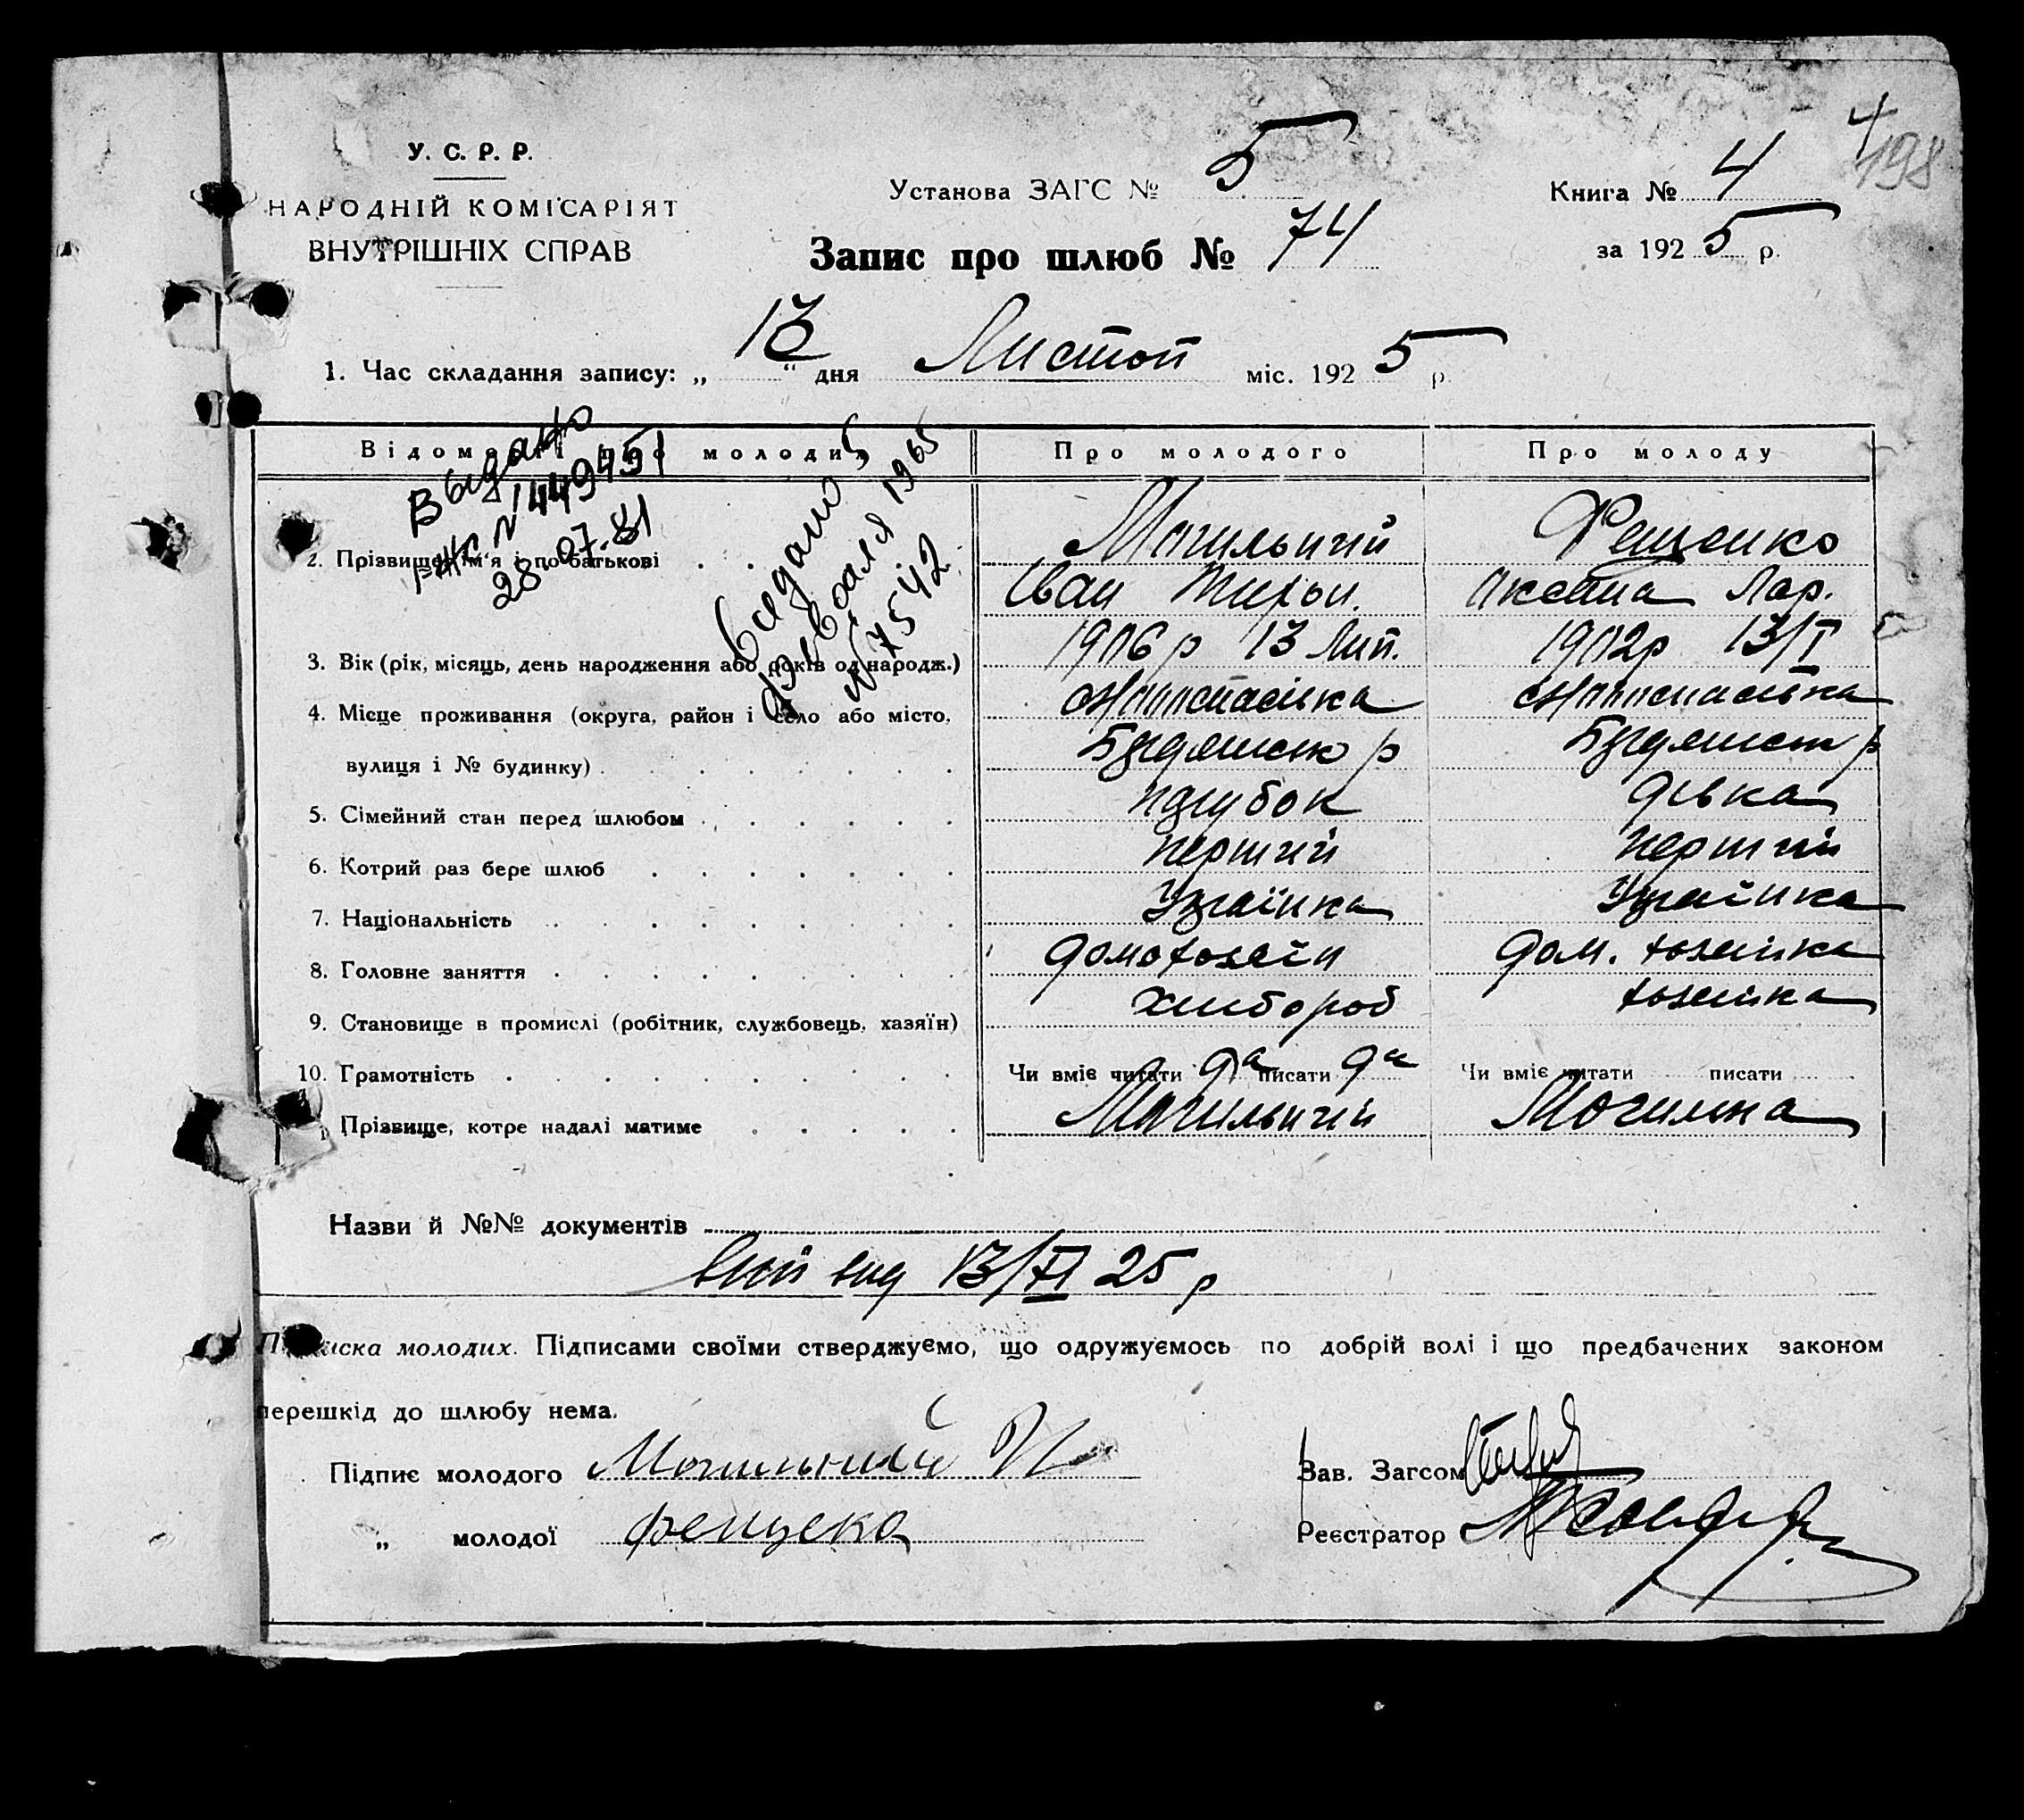 4
198
У. С. Р. Р.
НАРОДНІЙ КОМІСАРІЯТ
ВНУТРІШНІХ СПРАВ
Установа ЗАГС № 5
Книга № 4
Запис про шлюб № 74
за 1925 р.
1. Час складання запису: „13" дня Листоп міс. 1925 р.
Відомості про молодих
Про молодого
Про молоду
Выдано
N 449451
28.07.81
1965
N 7542
2. Прізвище, ім'я і по батькові
Могильний
Фещенко
Іван Тихон.
Лар.
3. Вік (рік, місяць, день народження або років од народж.)
1906 р 13 Лип.
1902р 13/I
4. Місце проживання (округа, район і село або місто,
вулиця і № будинку)
5. Сімейний стан перед шлюбом
парубок
дівка
6. Котрий раз бере шлюб
перший
перший
7. Національність
Українка
Українка
8. Головне заняття
домохозяїн
дом. хозяйка
9. Становище в промислі (робітник, службовець, хазяїн)
хлібороб
хозяйка
10. Грамотність
Чи вміє читати да писати да
Чи вміє читати писати
Прізвище, котре надалі матиме
Могильний
Могильна
Назви й №№ документів
13/XI 25 р
Підписка молодих. Підписами своїми стверджуємо, що одружуємось по добрій волі і що предбачених законом
перешкід до шлюбу нема.
Підпис молодого Могильний И
Зав. Загсом
„ молодої Фещека
Реєстратор